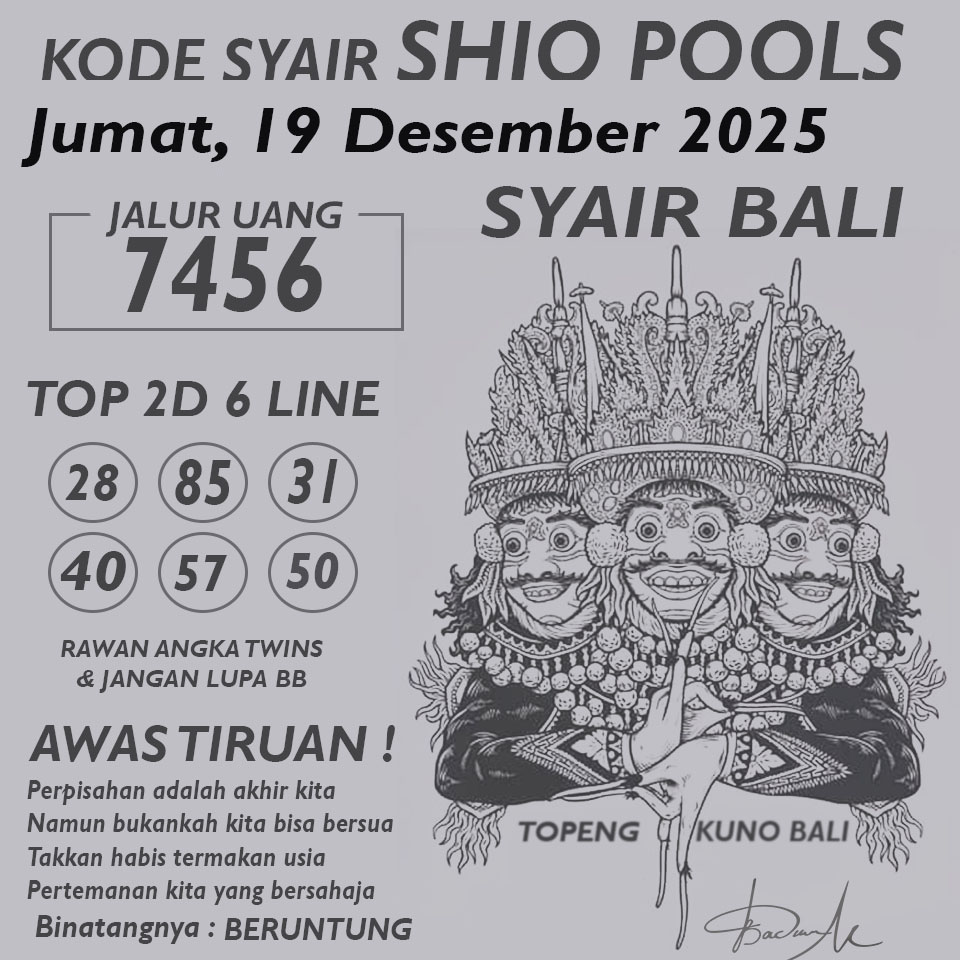 KODE SYAIR SHIO POOLS
Jumat, 19 Desember 2025
SYAIR BALI
JALUR UANG
7456
TOP 2D 6 LINE
28 85 31
40 57 50
RAWAN ANGKA TWINS
& JANGAN LUPA BB
AWAS TIRUAN !
Perpisahan adalah akhir kita
Namun bukankah kita bisa bersua
Takkan habis termakan usia
Pertemanan kita yang bersahaja
Binatangnya : BERUNTUNG
TOPENG KUNO BALI